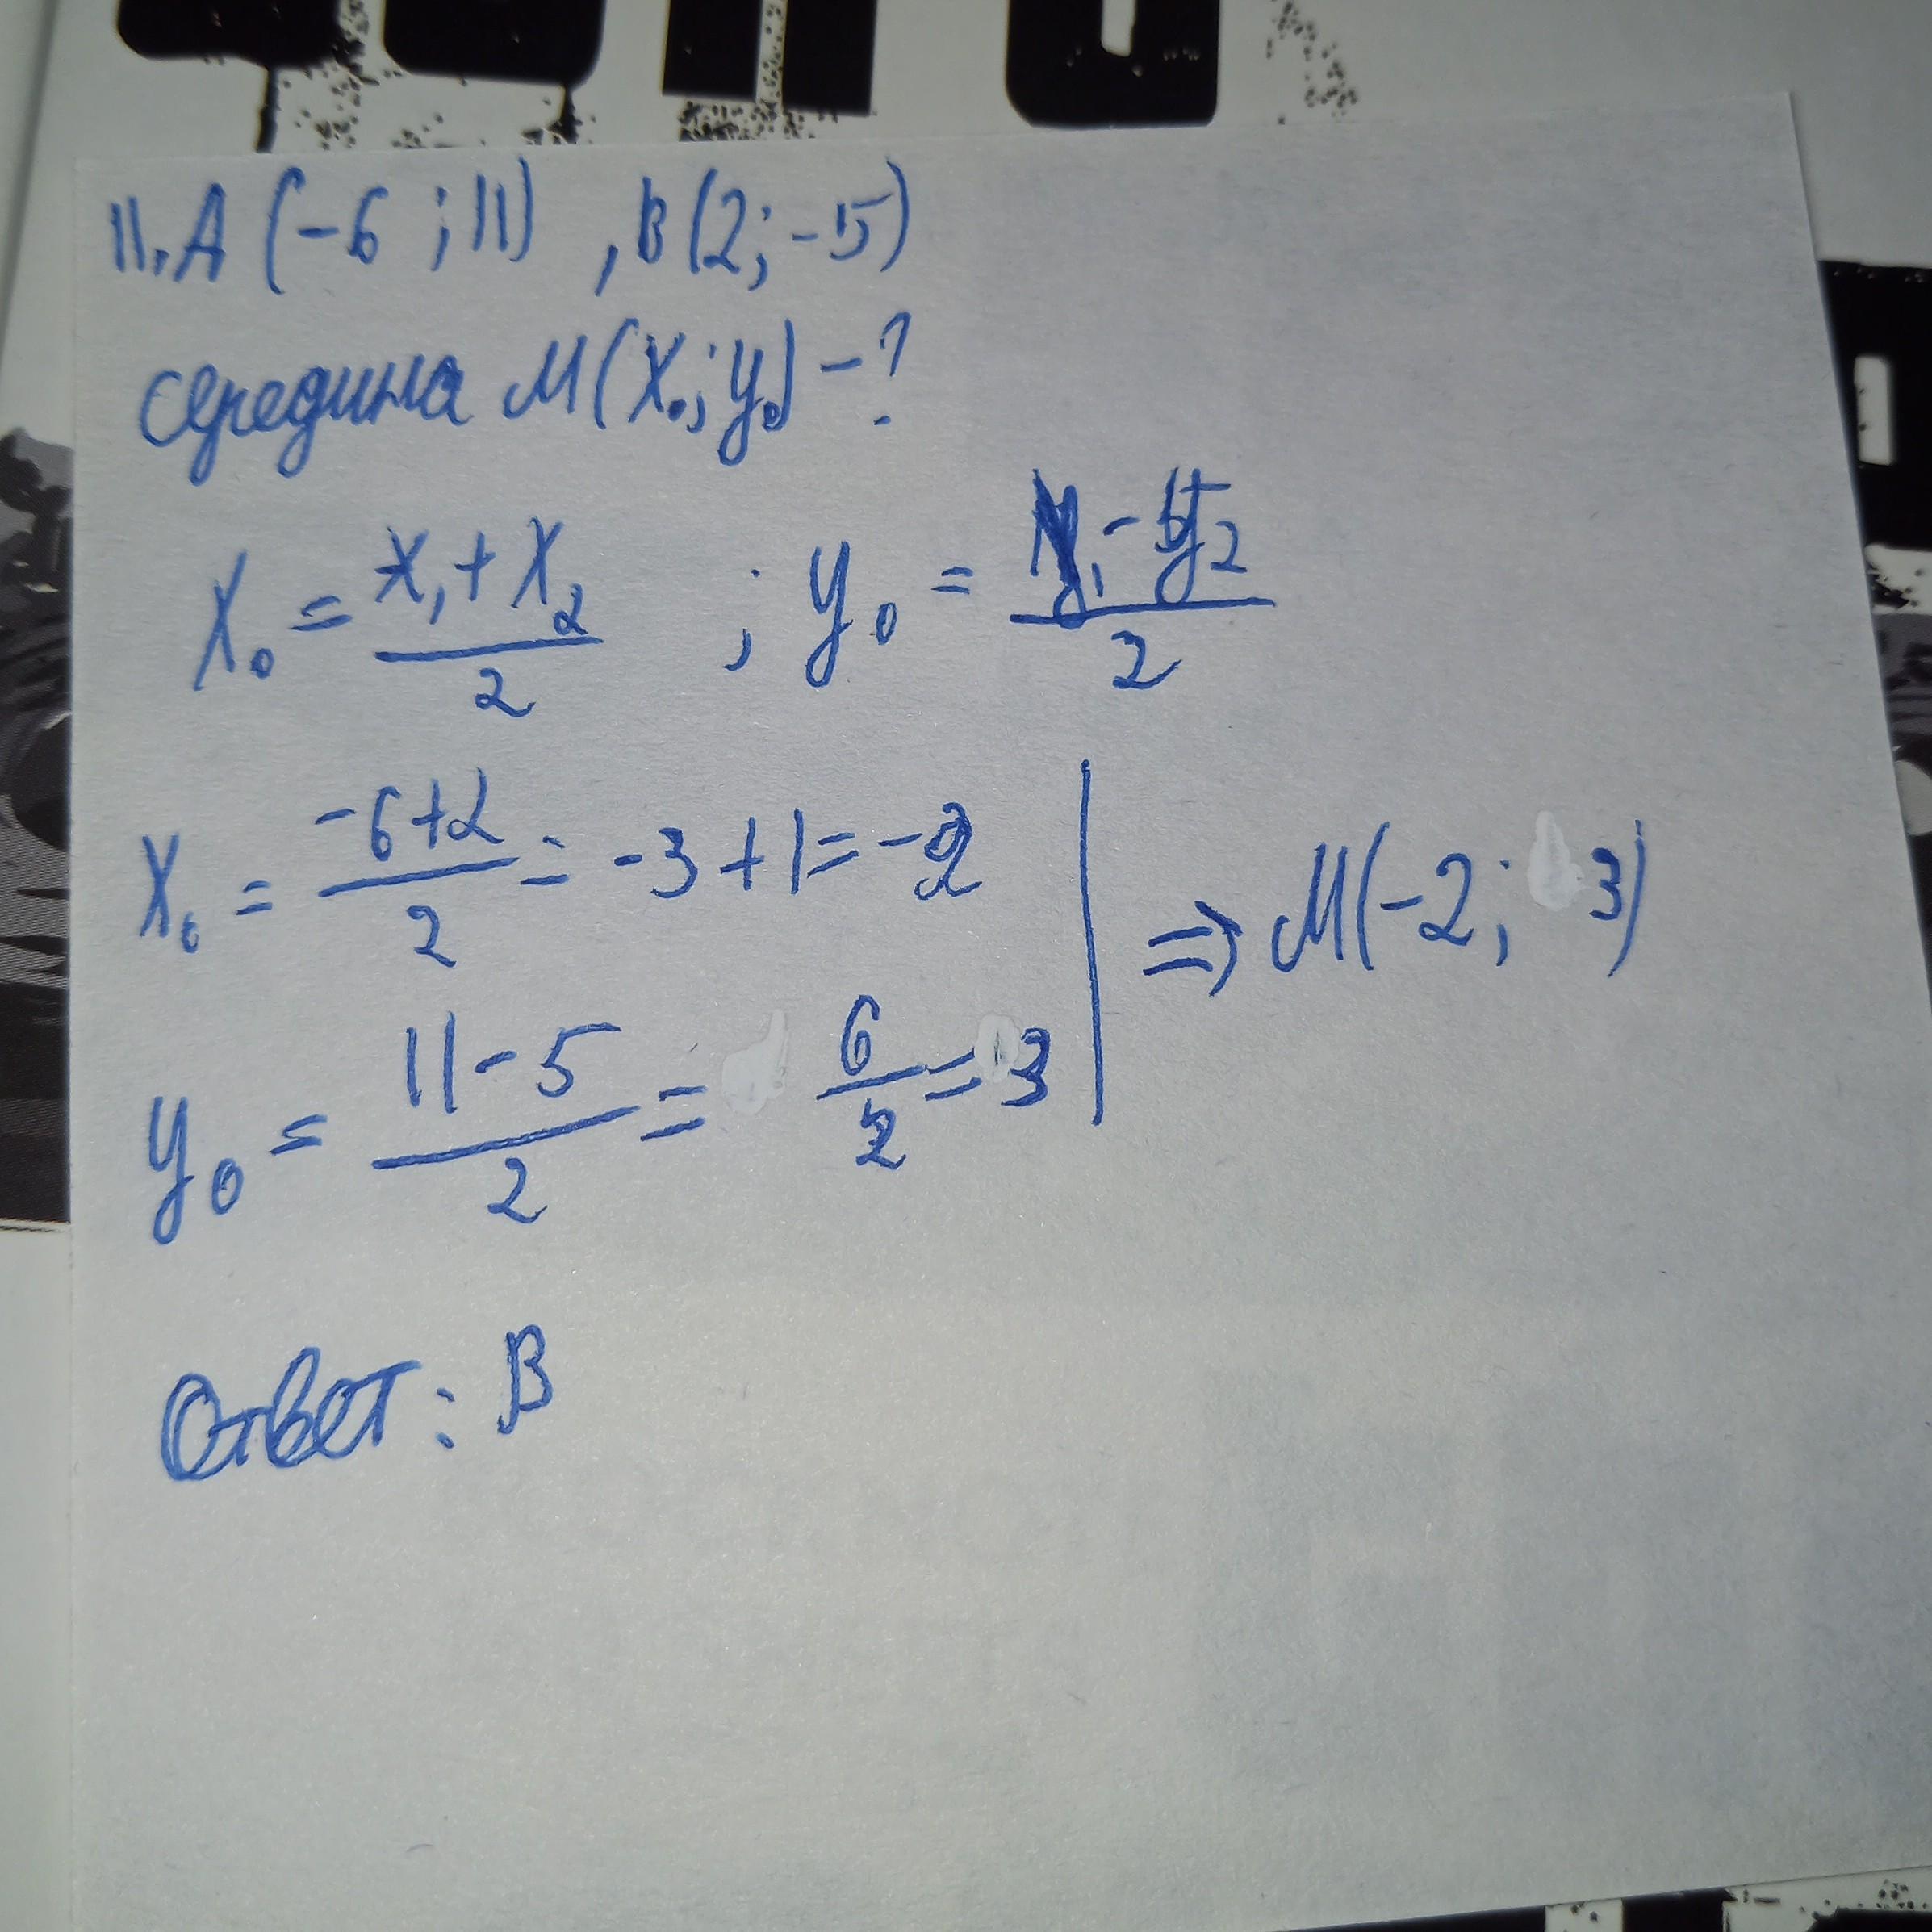 11. A (-6 ; 11) , B (2; -5)
середина M(X₀; y₀) - ?
X₀ = (x₁ + X₂)/2 ; y₀ = (y₁ - y₂)/2
X₀ = (-6+2)/2 = -3 + 1 = -2
y₀ = (11 - 5)/2 = 6/2 = 3
=> M(-2; 3)
Ответ: B